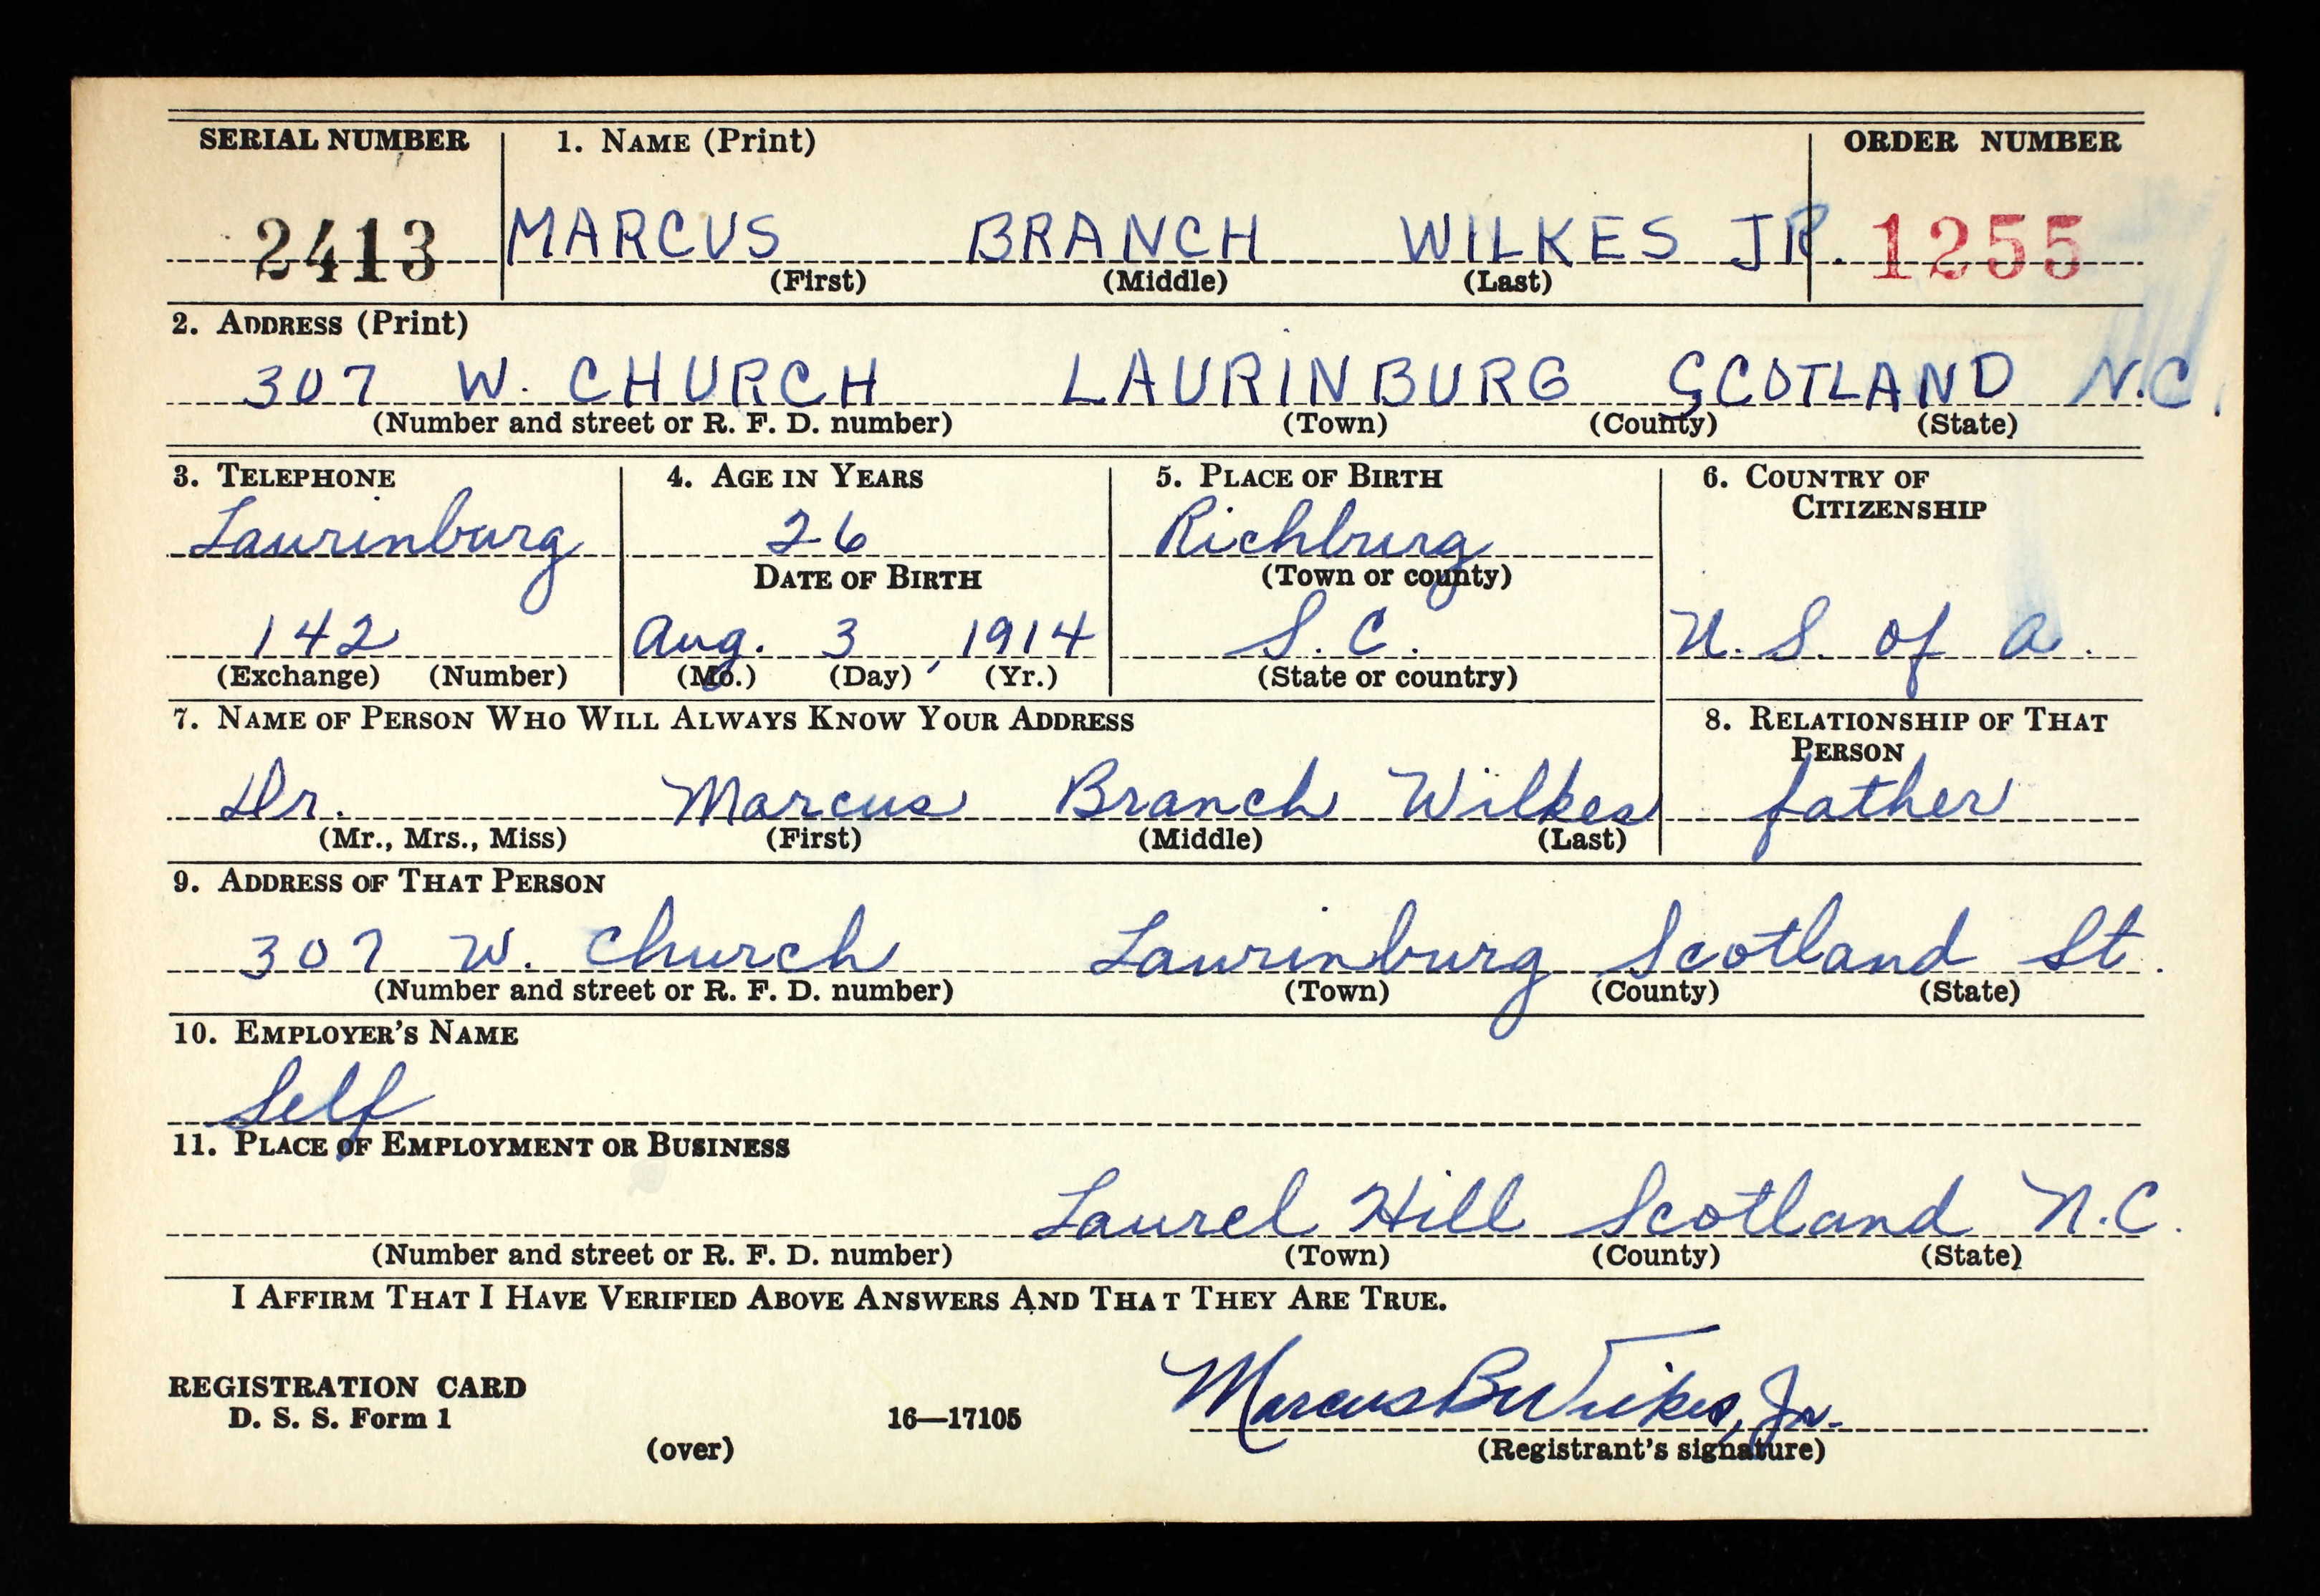 SERIAL NUMBER 1. NAME (Print) ORDER NUMBER
2413 MARCUS BRANCH WILKES JR. 1255
(First) (Middle) (Last)
2. ADDRESS (Print)
307 W. CHURCH LAURINBURG SCOTLAND N.C.
(Number and street or R. F. D. number) (Town) (County) (State)
3. TELEPHONE 4. AGE IN YEARS 5. PLACE OF BIRTH 6. COUNTRY OF
CITIZENSHIP
Laurinburg 26 Richburg
DATE OF BIRTH (Town or county)
142 Aug. 3, 1914 S. C. U. S. of a.
(Exchange) (Number) (Mo.) (Day) (Yr.) (State or country)
7. NAME OF PERSON WHO WILL ALWAYS KNOW YOUR ADDRESS 8. RELATIONSHIP OF THAT
PERSON
Dr. Marcus Branch Wilkes father
(Mr., Mrs., Miss) (First) (Middle) (Last)
9. ADDRESS OF THAT PERSON
307 W. Church Laurinburg Scotland St.
(Number and street or R. F. D. number) (Town) (County) (State)
10. EMPLOYER'S NAME
Self
11. PLACE OF EMPLOYMENT OR BUSINESS
Laurel Hill Scotland N.C.
(Number and street or R. F. D. number) (Town) (County) (State)
I AFFIRM THAT I HAVE VERIFIED ABOVE ANSWERS AND THAT THEY ARE TRUE.
REGISTRATION CARD
D. S. S. Form 1 16—17105 Marcus B Wilkes, Jr.
(over) (Registrant's signature)